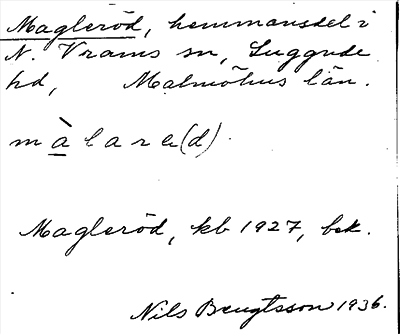 Magleröd, hemmansdel i
N. Vrams sn, Luggude
hd, Malmöhus län.
m à l a r e (d).
Magleröd, kb 1927, bok.
Nils Bengtsson 1936.